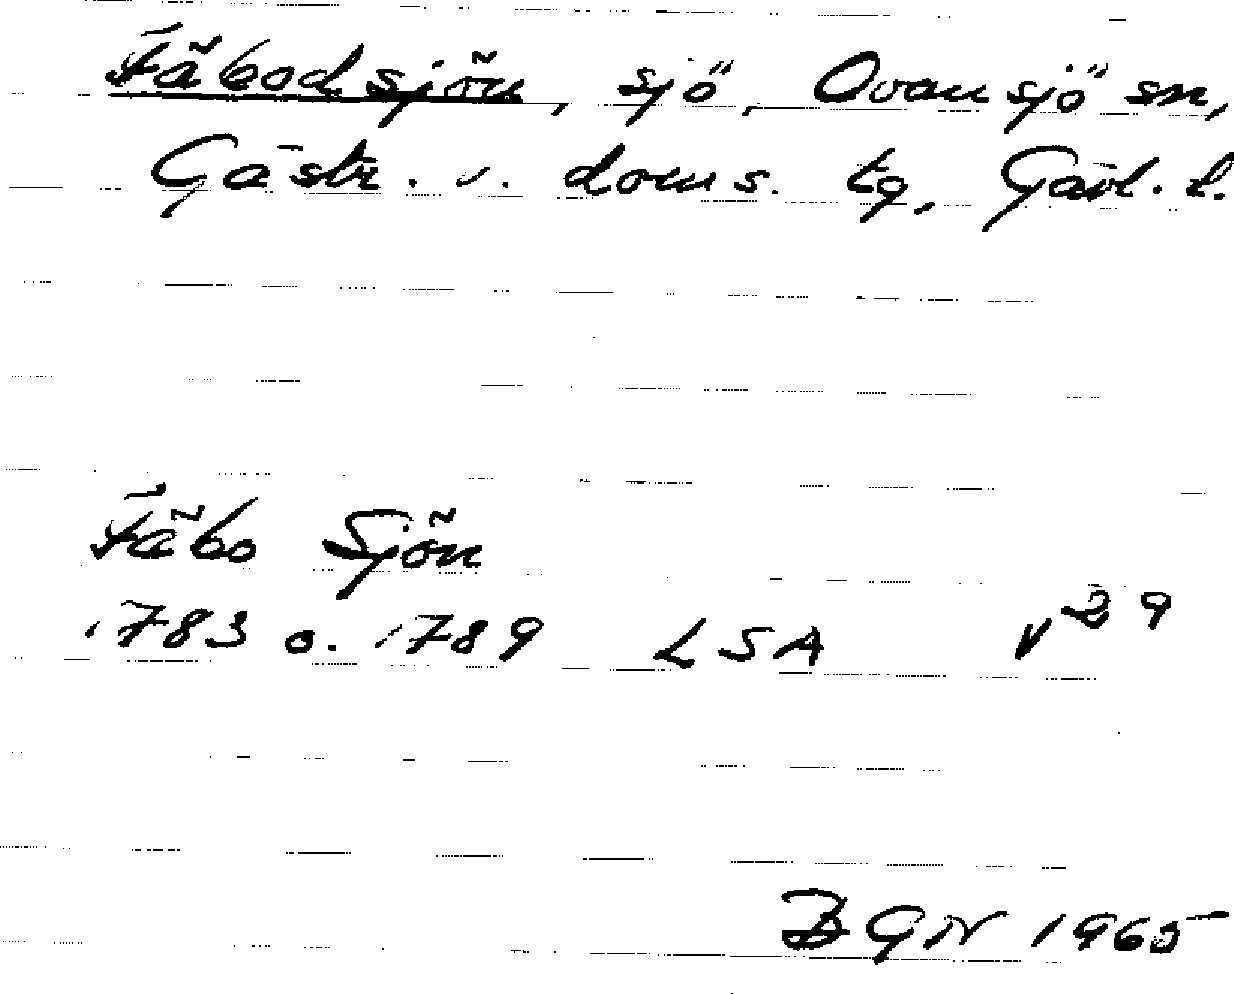 Fäbodsjön, sjö, Ovansjö sn,
Gästr. v. doms. tg, Gävl. l.
Fäbo Sjön
1783 o. 1789 LSA v 29
BGN 1965